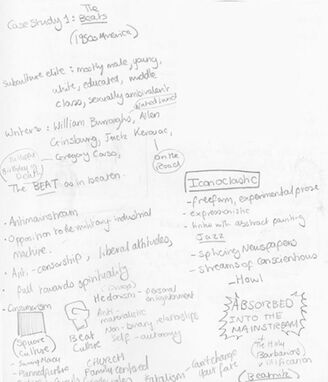 Case Study 1: The Beats
(1950s America)
Subculture elite: mostly male, young,
white, educated, middle
class, sexually ambivalent
Naked Lunch
Writers: William Burroughs, Allen
Ginsburg, Jack Kerouac,
Gregory Corso,
on the Road
The BEAT as in beaten.
Iconoclastic
- freeform, experimental prose
- expressionistic
- links with abstract painting
Jazz
- Splicing Newspapers
- Streams of conscientious
- Howl
- Antimainstream
- Opposition to the military industrial
machine.
- Anti-censorship, liberal attitudes,
- Pull towards spirituality
- Consumerism
(drugs)
Hedonism - personal
enlightenment
Anti
materialistic
Non-binary relationships
Self-autonomy
Square
Culture
Beat
Culture
ABSORBED
INTO THE
MAINSTREAM
The Holy
Barbarians
Vilification
Beatnik
Church
Family centred
Fatalism
Can't change
your fate